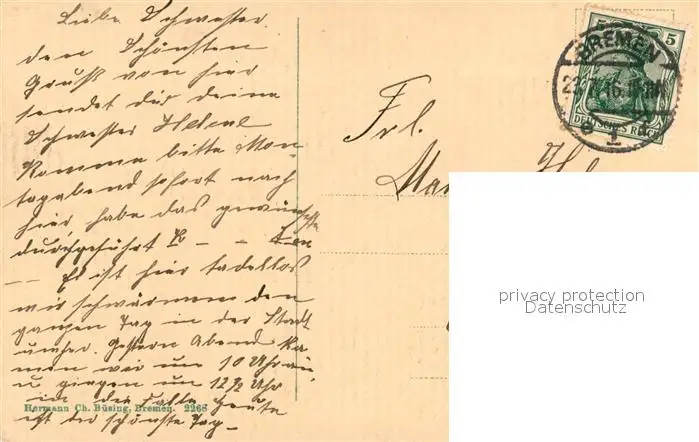 Liebe Schwester.
den Schönsten
Gruß von hier
sendet dir deine
Schwester Helene
Komme bitte Mon-
tagabend sofort nach
hier, habe das gewünschte
durchgeführt
Es ist hier tadellos
wir schwärmen den
ganzen Tag in der Stadt
umher. Gestern Abend ka-
men wir um 10 Uhr an
u gingen um 12½ Uhr
in die Falle heute
ist der schönste Tag
Hermann Ch. Büsing, Bremen. 2268
5 5
BREMEN
23.7.16
DEUTSCHES REICH
Frl.
privacy protection
Datenschutz